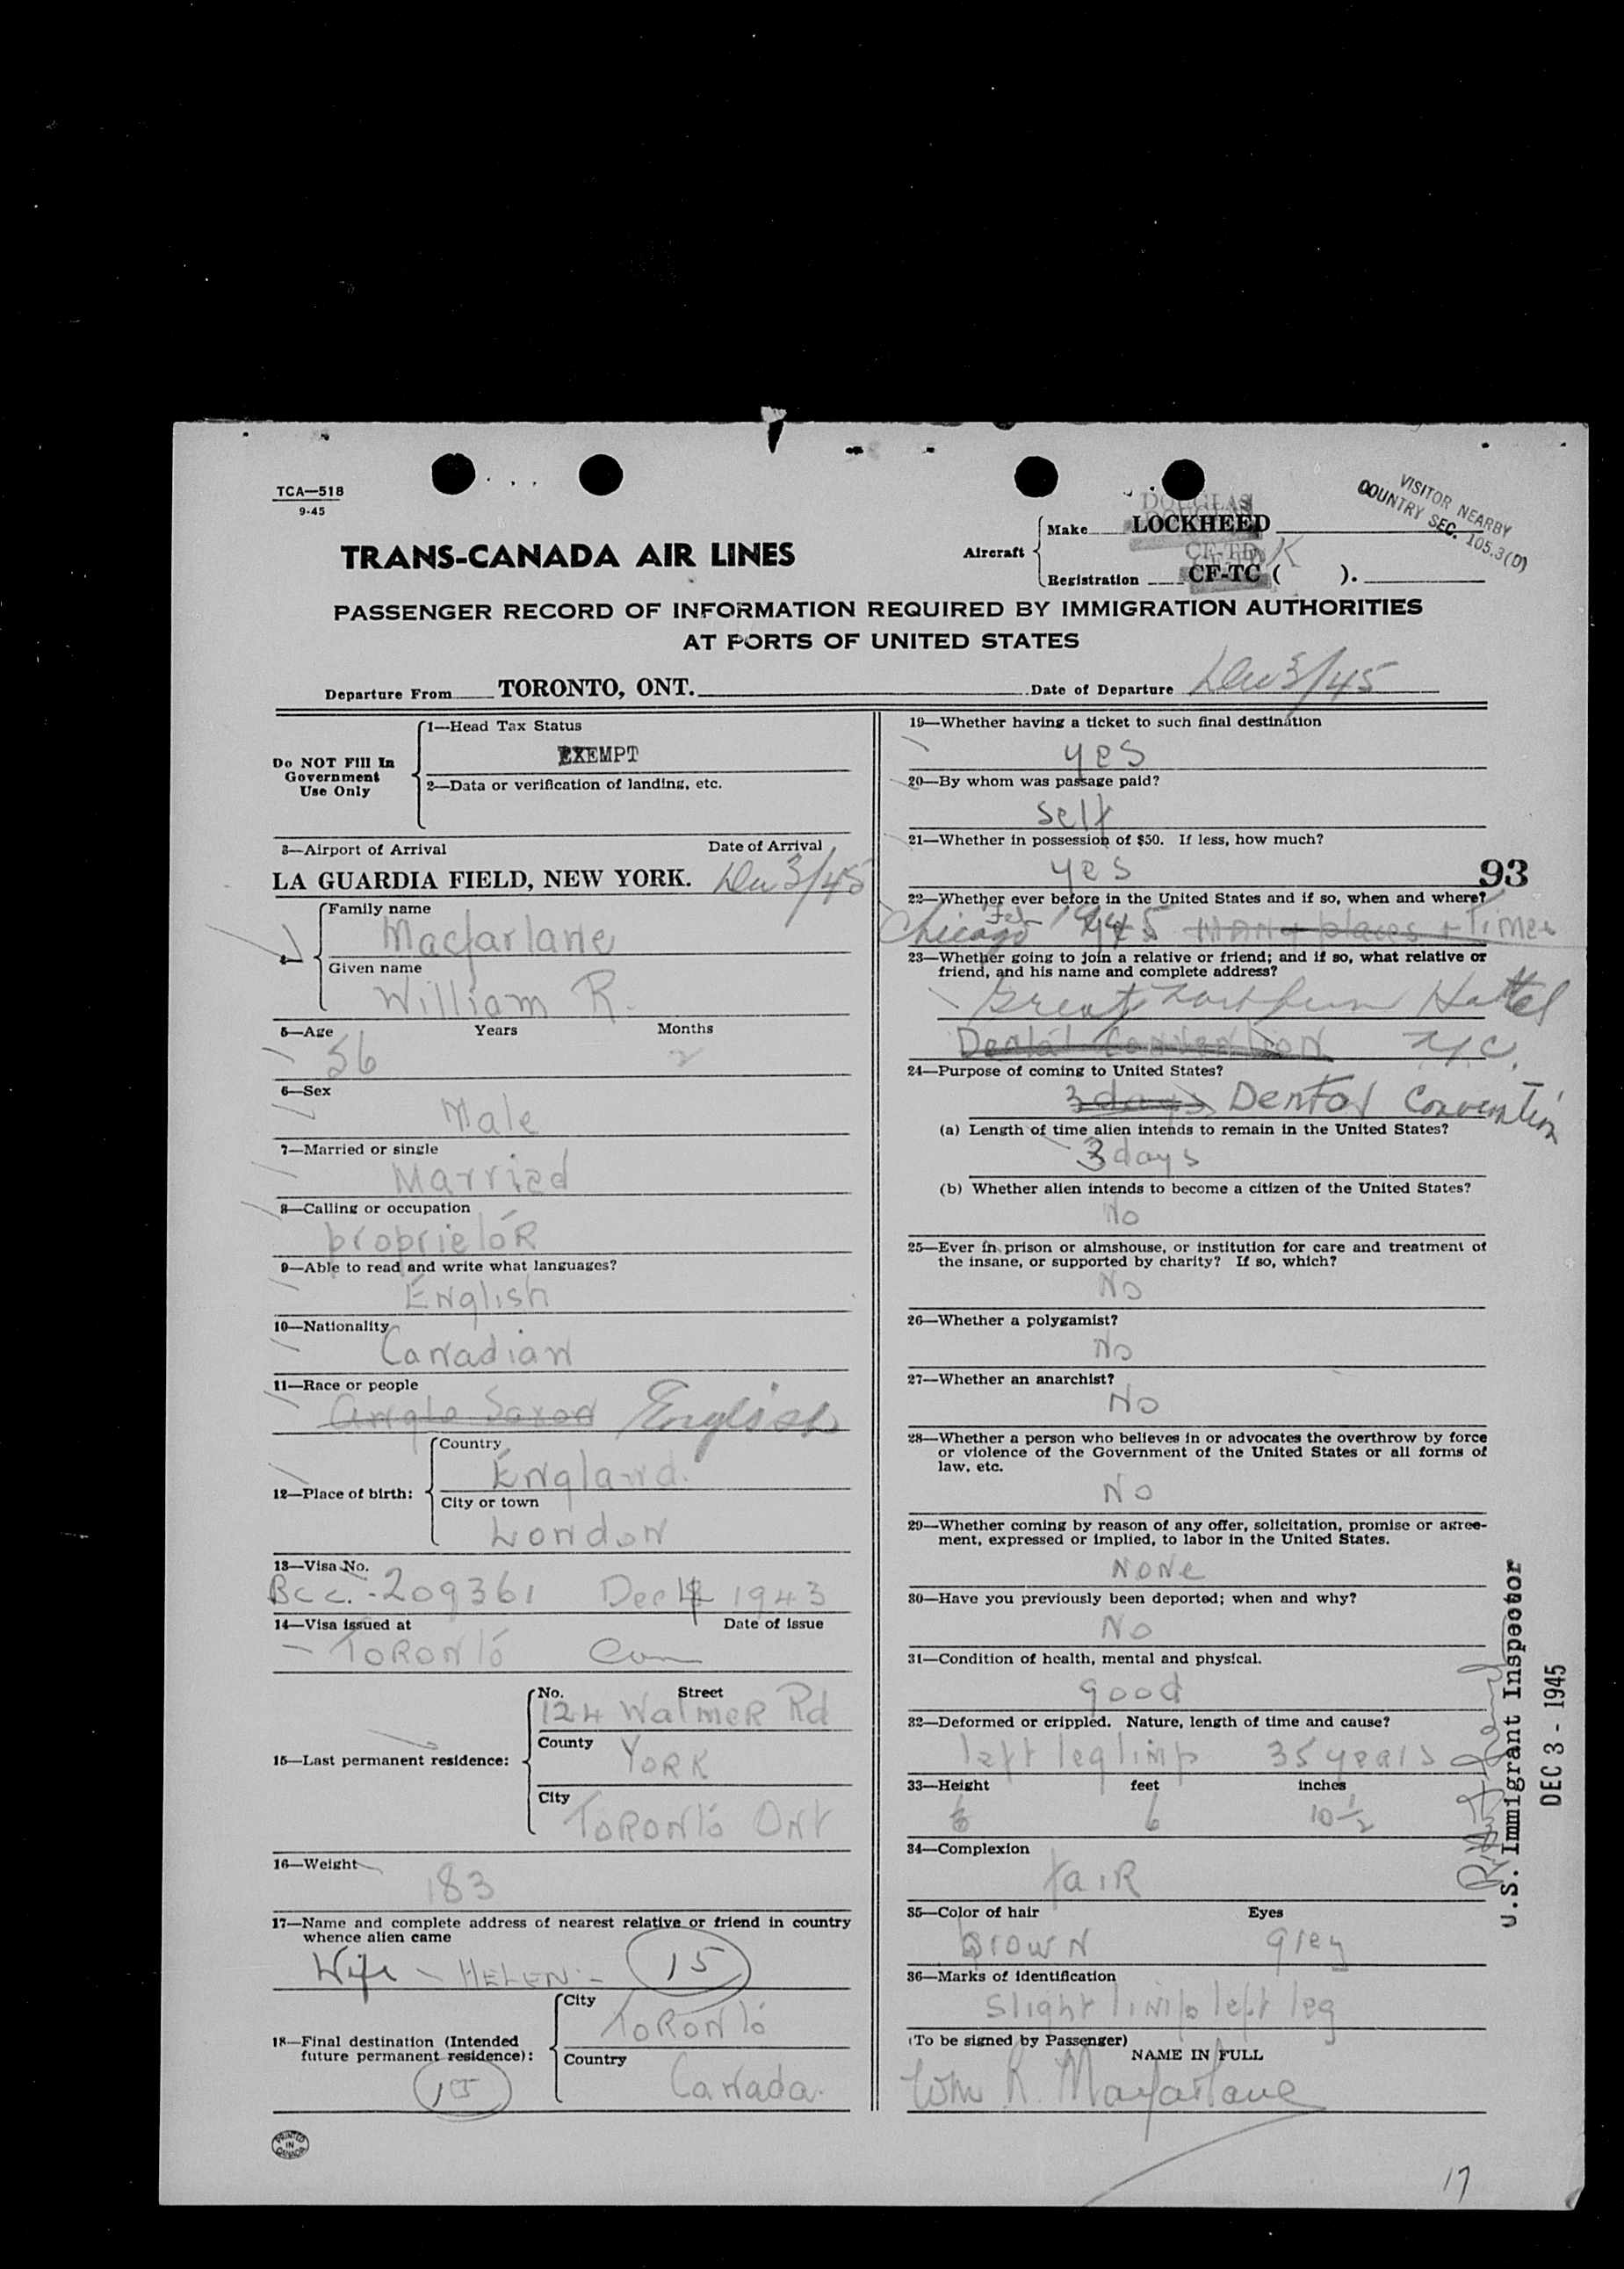 TCA—518
9-45
VISITOR NEARBY
COUNTRY SEC. 105.3(D)
DOUGLAS
Aircraft
Make LOCKHEED
Registration CF-TC ( ).
K
TRANS-CANADA AIR LINES
PASSENGER RECORD OF INFORMATION REQUIRED BY IMMIGRATION AUTHORITIES
AT PORTS OF UNITED STATES
Departure From TORONTO, ONT. Date of Departure Dec 3/45
Do NOT Fill In
Government
Use Only
1—Head Tax Status
EXEMPT
2—Data or verification of landing, etc.
3—Airport of Arrival Date of Arrival
LA GUARDIA FIELD, NEW YORK. Dec 3/45
Family name
Macfarlane
Given name
William R.
5—Age Years Months
56 2
6—Sex
Male
7—Married or single
Married
8—Calling or occupation
proprietor
9—Able to read and write what languages?
English
10—Nationality
Canadian
11—Race or people
Anglo Saxon English
12—Place of birth:
Country
England.
City or town
London
13—Visa No.
BCC.-209361 Dec 1943
14—Visa issued at Date of issue
Toronto Can
15—Last permanent residence:
No. Street
124 Walmer Rd
County
York
City
Toronto Ont
16—Weight
183
17—Name and complete address of nearest relative or friend in country
whence alien came
Wife - HELEN - 15
18—Final destination (Intended
future permanent residence):
15
City
Toronto
Country
Canada.
PRINTED
IN
CANADA
19—Whether having a ticket to such final destination
yes
20—By whom was passage paid?
self
21—Whether in possession of $50. If less, how much?
yes
93
22—Whether ever before in the United States and if so, when and where?
Chicago Feb 1945 yes Many places + Times
23—Whether going to join a relative or friend; and if so, what relative or
friend, and his name and complete address?
Great Northern Hotel
Dental Convention NYC.
24—Purpose of coming to United States?
3 days Dental Convention
(a) Length of time alien intends to remain in the United States?
3 days
(b) Whether alien intends to become a citizen of the United States?
No
25—Ever in prison or almshouse, or institution for care and treatment of
the insane, or supported by charity? If so, which?
No
26—Whether a polygamist?
No
27—Whether an anarchist?
No
28—Whether a person who believes in or advocates the overthrow by force
or violence of the Government of the United States or all forms of
law, etc.
No
29—Whether coming by reason of any offer, solicitation, promise or agree-
ment, expressed or implied, to labor in the United States.
None
30—Have you previously been deported; when and why?
No
31—Condition of health, mental and physical.
good
32—Deformed or crippled. Nature, length of time and cause?
left leg limp 35 years
33—Height feet inches
6 10½
34—Complexion
fair
35—Color of hair Eyes
Brown grey
36—Marks of identification
slight limp left leg
(To be signed by Passenger)
NAME IN FULL
Wm R. Macfarlane
U.S. Immigrant Inspector
DEC 3 - 1945
17